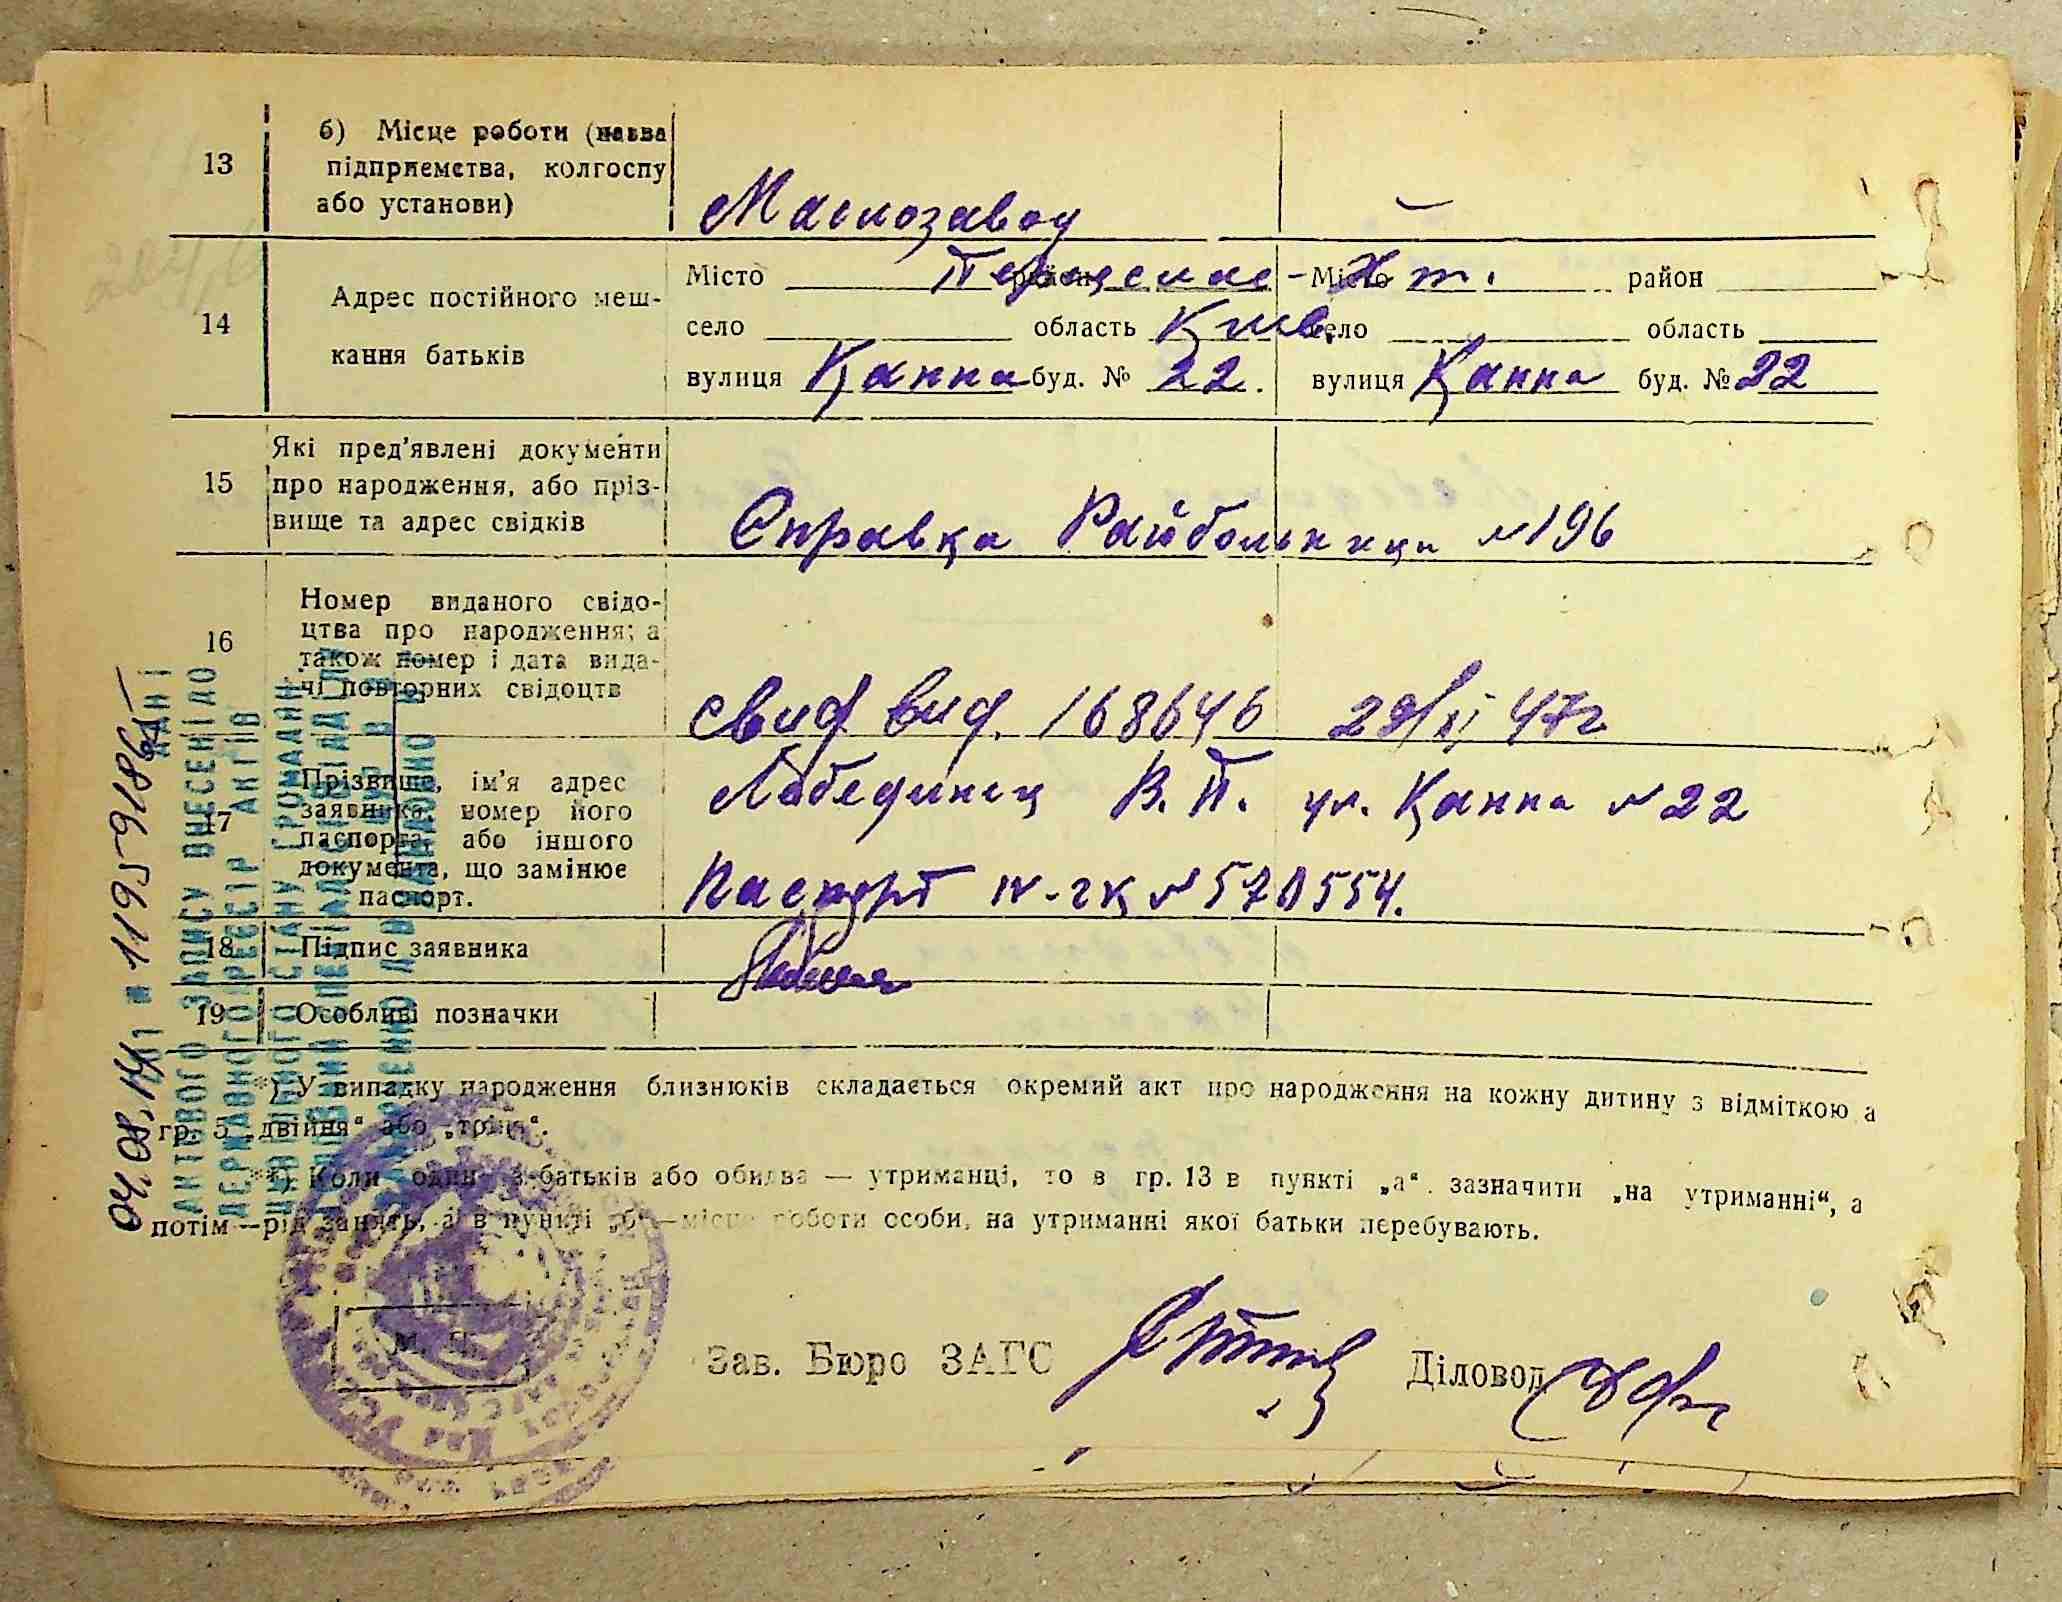 13
б) Місце роботи (назва
підприємства, колгоспу
або установи)
Маслозавод
—
14
Адрес постійного меш-
кання батьків
Місто Переяслав-Хм. Місто район
село область Киев. село область
вулиця Қанна буд. № 22. вулиця Қанна буд. № 22
15
Які пред'явлені документи
про народження, або пріз-
вище та адрес свідків
Справка Райбольници № 196
16
Номер виданого свідо-
цтва про народження; а
також номер і дата вида-
чі повторних свідоцтв
свид вид. 168646 29/XI 47г
17
Прізвище, ім'я адрес
заявника, номер його
паспорта, або іншого
документа, що замінює
паспорт.
Лебединец В. П. ул. Қанна № 22
Паспорт IV-гк № 570554.
18
Підпис заявника
19
Особливі позначки
*) У випадку народження близнюків складається окремий акт про народження на кожну дитину з відміткою а
гр. 5 „двійня“ або „трійня“.
**) Коли один з батьків або обидва — утриманці, то в гр. 13 в пункті „а“ зазначити „на утриманні“, а
потім — рід занять, а в пункті „б“ — місце роботи особи, на утриманні якої батьки перебувають.
М. П.
Зав. Бюро ЗАГС
Діловод
АКТОВОГО ЗАПИСУ ВНЕСЕНІ ДО
ДЕРЖАВНОГО РЕЄСТР АКТІВ
ЦИВІЛЬНОГО СТАНУ ГРОМАДЯН